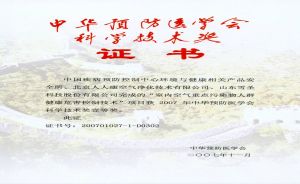 中华预防医学会
科学技术奖
证 书
中国疾病预防控制中心环境与健康相关产品安
全所、北京人人康空气净化技术有限公司、山东雪圣
科技股份有限公司完成的“室内空气重点污染物人群
健康危害控制技术”项目获 2007 年中华预防医学会
科学技术奖壹等奖。
此证
证书号：200701027-1-D0302
中华预防医学会
二〇〇七年十一月